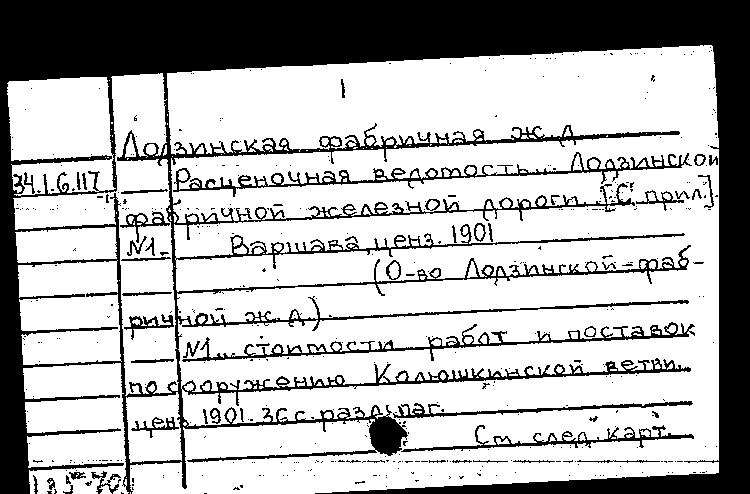 1
Лодзинская фабричная ж.д
34.1.6.117 Расценочная ведомость... Лодзинской
фабричной железной дороги. [С прил.]
N1- Варшава, ценз. 1901
(О-во Лодзинской-фаб-
ричной ж.д.)
N1... стоимости работ и поставок
по сооружению Колюшкинской ветви.
ценз. 1901. 36 с. разд. паг.
См. след. карт.